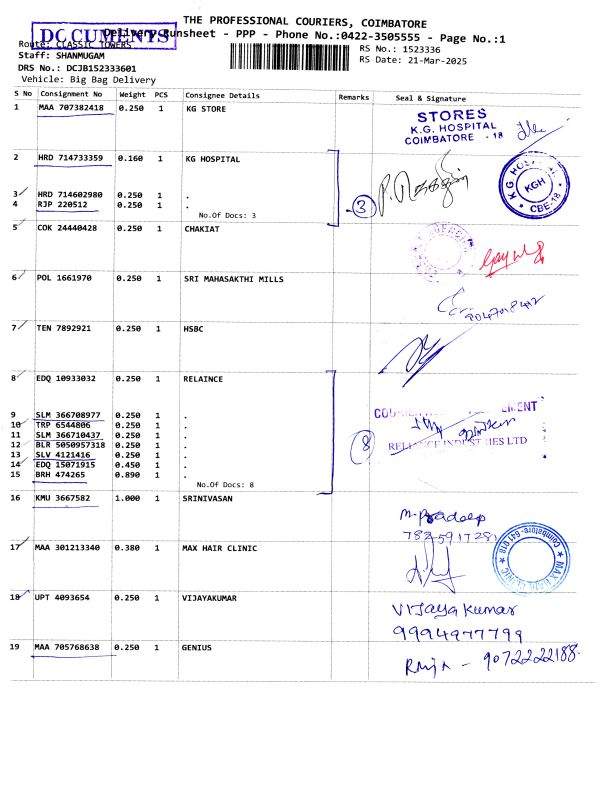 THE PROFESSIONAL COURIERS, COIMBATORE
DOCUMENTS
Delivery Runsheet - PPP - Phone No.:0422-3505555 - Page No.:1
Route: CLASSIC TOWERS
RS No.: 1523336
Staff: SHANMUGAM
RS Date: 21-Mar-2025
DRS No.: DCJB152333601
Vehicle: Big Bag Delivery
S No Consignment No Weight PCS Consignee Details Remarks Seal & Signature
1 MAA 707382418 0.250 1 KG STORE
STORES
K.G. HOSPITAL
COIMBATORE - 18
2 HRD 714733359 0.160 1 KG HOSPITAL
K.G. HOSPITAL KGH CBE-18
3 HRD 714602980 0.250 1 .
4 RJP 220512 0.250 1 .
3
No.Of Docs: 3
5 COK 24440428 0.250 1 CHAKIAT
6 POL 1661970 0.250 1 SRI MAHASAKTHI MILLS
7 TEN 7892921 0.250 1 HSBC
8 EDQ 10933032 0.250 1 RELAINCE
9 SLM 366708977 0.250 1 .
10 TRP 6544806 0.250 1 .
11 SLM 366710437 0.250 1 .
12 BLR 5050957318 0.250 1 .
13 SLV 4121416 0.250 1 .
14 EDQ 15071915 0.450 1 .
15 BRH 474265 0.890 1 .
8
RELIANCE INDUSTRIES LTD
No.Of Docs: 8
16 KMU 3667582 1.000 1 SRINIVASAN
M. Pradeep
17 MAA 301213340 0.380 1 MAX HAIR CLINIC
MAX HAIR CLINIC Coimbatore-641 018
18 UPT 4093654 0.250 1 VIJAYAKUMAR
Vijaya Kumar
9994977799
19 MAA 705768638 0.250 1 GENIUS
9072222188